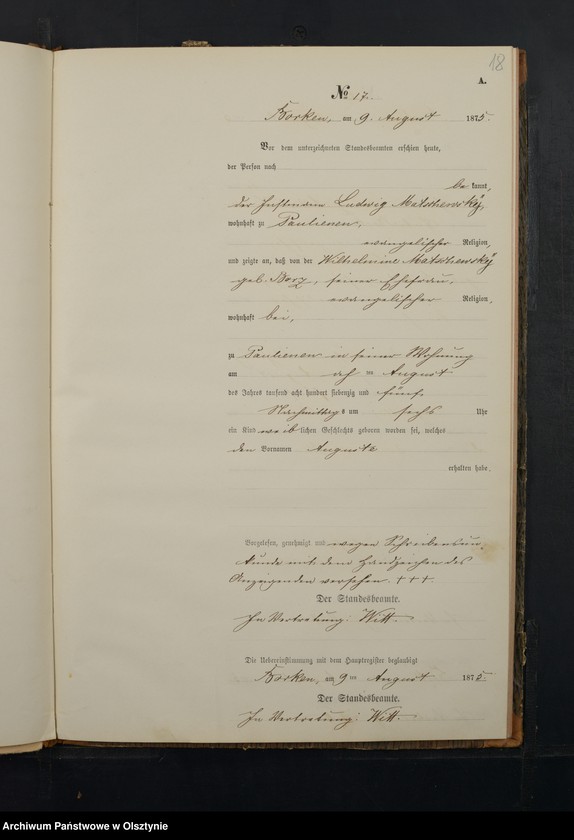 18
A.
No 17.
Borken, am 9. August 1875.
Vor dem unterzeichneten Standesbeamten erschien heute,
der Person nach
bekannt,
der Instmann Ludwig Matschewsky,
wohnhaft zu Paulienen,
evangelischer Religion,
und zeigte an, daß von der Wilhelmine Matschewsky
geb. , seiner Ehefrau,
evangelischer Religion,
wohnhaft bei ,
zu Paulienen in seiner Wohnung
am ten August
des Jahres tausend acht hundert siebenzig und fünf,
Nachmittags um sechs Uhr
ein Kind weiblichen Geschlechts geboren worden sei, welches
den Vornamen Auguste
erhalten habe.
Vorgelesen, genehmigt und wegen Schreibensun-
kunde mit dem Handzeichen des
Anzeigenden versehen. + + +
Der Standesbeamte.
In Vertretung: Witt.
Die Uebereinstimmung mit dem Hauptregister beglaubigt
Borken, am 9 ten August 1875.
Der Standesbeamte.
In Vertretung: Witt.
Archiwum Państwowe w Olsztynie